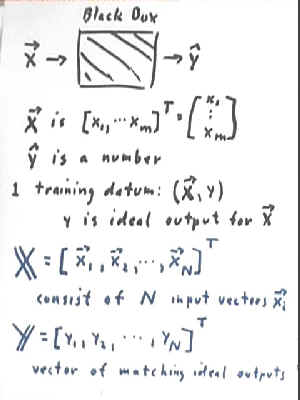 Black Box
x⃗ → → ŷ
x⃗ is [x₁, ⋯ xₘ]ᵀ = [x₁ ⋮ xₘ]
ŷ is a number
1 training datum: (x⃗, y)
y is ideal output for x⃗
𝕏 = [x⃗₁, x⃗₂, ⋯, x⃗_N]ᵀ
consist of N input vectors x⃗ᵢ
𝕐 = [y₁, y₂, ⋯, y_N]ᵀ
vector of matching ideal outputs